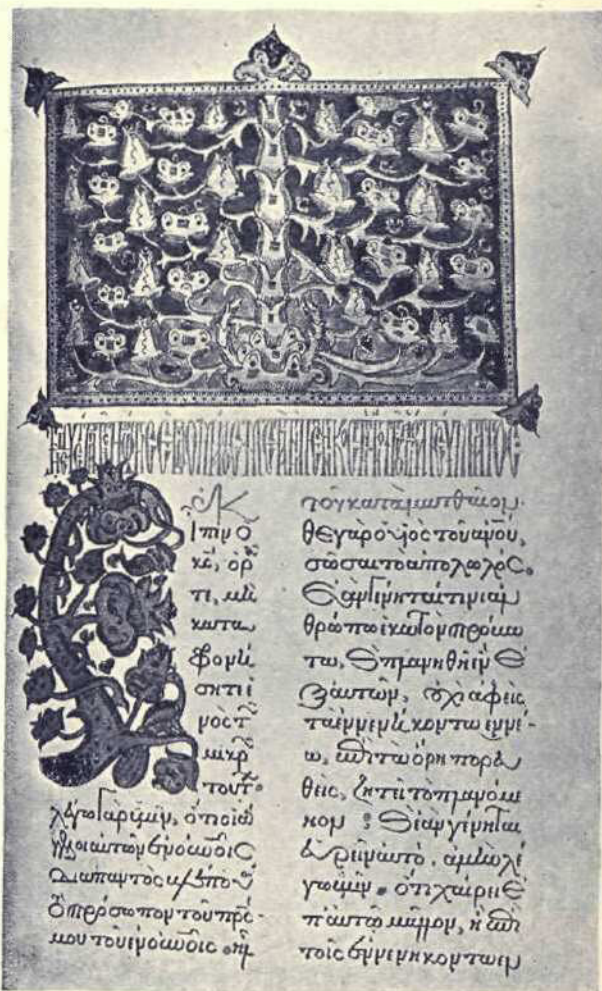 ἐκ
Εἶπεν ὁ
κς, ὁρᾶ
τε, μὴ
κατα
φρονή
σητε ἑ
νὸς τ
μικρ
τούτ.
λέγω γὰρ ὑμῖν, ὅτι οἱ ἄγ
γελοι αὐτῶν ἐν οὐνοις
διαπαντὸς βλέπου
τὸ πρόσωπον τοῦ πρς
μου τοῦ ἐν οὐνοις. ἦλ
τοῦ κατὰ ματθαῖον.
θε γὰρ ὁ υἱὸς τοῦ ανου,
σῶσαι τὸ ἀπολωλός.
Ἐὰν γένηται τινι ἀν
θρώπω ἑκατὸν πρόβα
τα, καὶ πλανηθῆ ἓν ἐ
ξ αὐτῶν, οὐχ ἀφεὶς
τὰ ἐννενήκοντα ἐννέ
α, ἐπὶ τὰ ὄρη πορευ
θεὶς, ζητεῖ τὸ πλανώμε
νον; καὶ ἐὰν γένηται
εὑρεῖν αὐτό, ἀμὴν λέ
γω ὑμῖν. ὅτι χαίρει ἐ
π αὐτῶ μᾶλλον, ἢ ἐπὶ
τοῖς ἐννενήκοντα ἐν